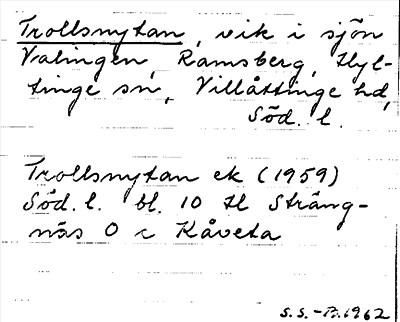 Trollsnytan, vik i sjön
Valingen, Ramsberg, Hyl-
tinge sn, Villåttinge hd,
Söd. l.
Trollsnytan ek (1959)
Söd. l. bl. 10 tl Sträng-
näs O c Kåveta
S.S.-B. 1962